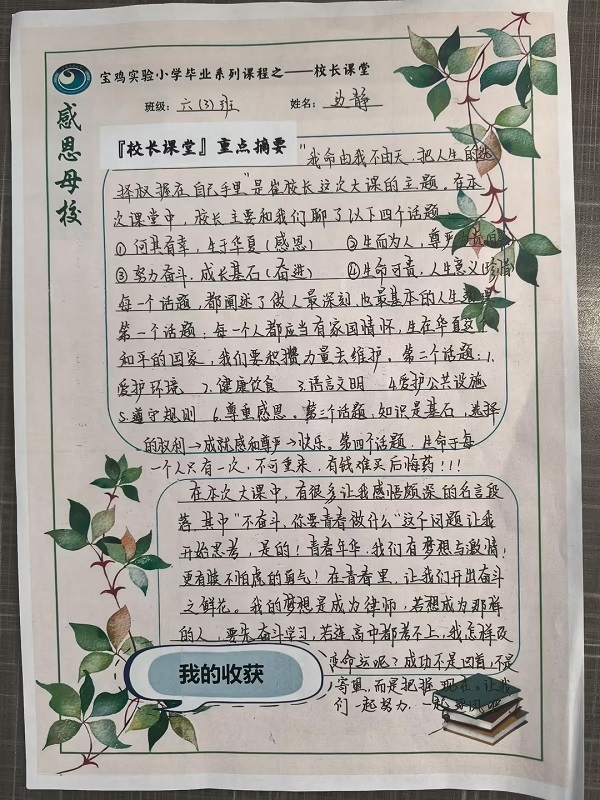 宝鸡实验小学毕业系列课程之——校长课堂
班级：六(3)班 姓名：边静
感恩母校
『校长课堂』重点摘要
"我命由我不由天，把人生的选
择权握在自己手里"是崔校长这次大课的主题。在本
次课堂中，校长主要和我们聊了以下四个话题
①何其有幸，生于华夏（感恩） ②生而为人，尊严
③努力奋斗，成长基石（奋进） ④生命可贵，人生意义
每一个话题，都阐述了做人最深刻，也最基本的人生
第一个话题：每一个人都应当有家国情怀，生在华夏这个
和平的国家，我们要积攒力量去维护。第二个话题：1.
爱护环境 2.健康饮食 3.语言文明 4.爱护公共设施
5.遵守规则 6.尊重感恩。第三个话题，知识是基石，选择
的权利→成就感和尊严→快乐。第四个话题，生命于每
一个人只有一次，不可重来，有钱难买后悔药！！！
在本次大课中，有很多让我感悟颇深的名言段
落，其中"不奋斗，你要青春做什么"这个问题让我
开始思考，是的！青春年华，我们有梦想与激情！
更有谈不怕虎的勇气！在青春里，让我们开出奋斗
之鲜花。我的梦想是成为律师，若想成为那样
的人，要先奋斗学习，若连高中都考不上，我怎样改
变命运呢？成功不是回首，不是
寄望，而是把握现在。让我
们一起努力，
我的收获